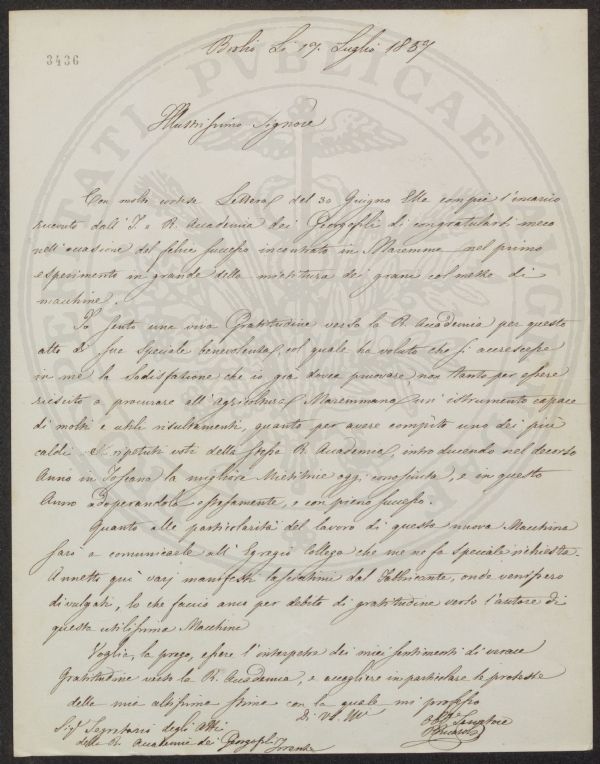 3436
Brolio Li 17. Luglio 1857
Illustrissimo Signore
Con molto cortese Lettera del 30 Giugno Ella compiè l'incarico
ricevuto dall'I. e R. Accademia dei Georgofili di congratularsi meco
nell'occasione del felice successo incontrato in Maremma nel primo
esperimento in grande della mietitura dei grani col mezzo di
macchine.
Io sento una viva Gratitudine verso la R. Accademia per questo
atto di sua speciale benevolenza, col quale ha voluto che si accrescesse
in me la Sodisfazione che io già dovea pruovare, non tanto per essere
riescito a procurare all'Agricoltura Maremmana un'istrumento capace
di molti e utili risultamenti, quanto per avere compito uno dei più
caldi e ripetuti voti della stessa R. Accademia, introducendo nel decorso
Anno in Toscana la migliore Mietitrice oggi conosciuta, e in questo
Anno adoperandola estesamente, e con pieno successo.
Quanto alle particolarità del lavoro di questa nuova Macchina
sarò a comunicarle all'Egregio Collega che me ne fa speciale richiesta.
Annetto quì varj manifesti lasciatimi dal Fabbricante, onde venissero
divulgati, lo che faccio anco per debito di gratitudine verso l'autore di
questa utilissima Macchina
Voglia, la prego, essere l'interpetre dei miei sentimenti di verace
Gratitudine verso la R. Accademia, e accogliere in particolare le proteste
della mia altissima stima con la quale mi professo
Di VS. Ill
Sig. Segretario degli Atti
della R. Accademia dei Georgofili Firenze